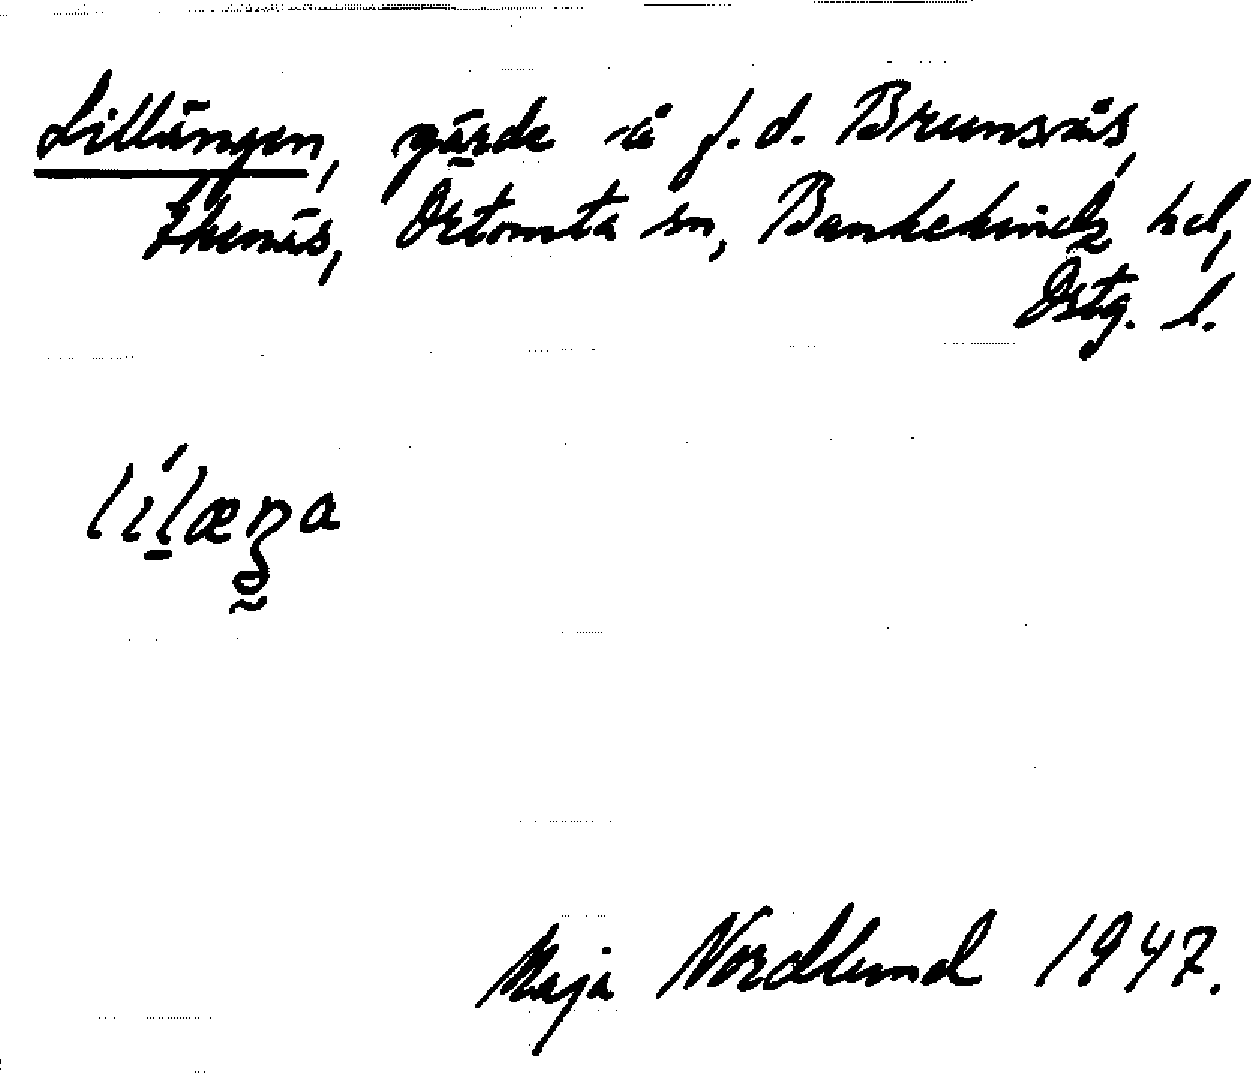 Lillängen, gärde å f.d. Brunsvås,
Ekenäs, Örtomta sn, Bankekinds hd,
Östg. l.
Maja Nordlund 1947.